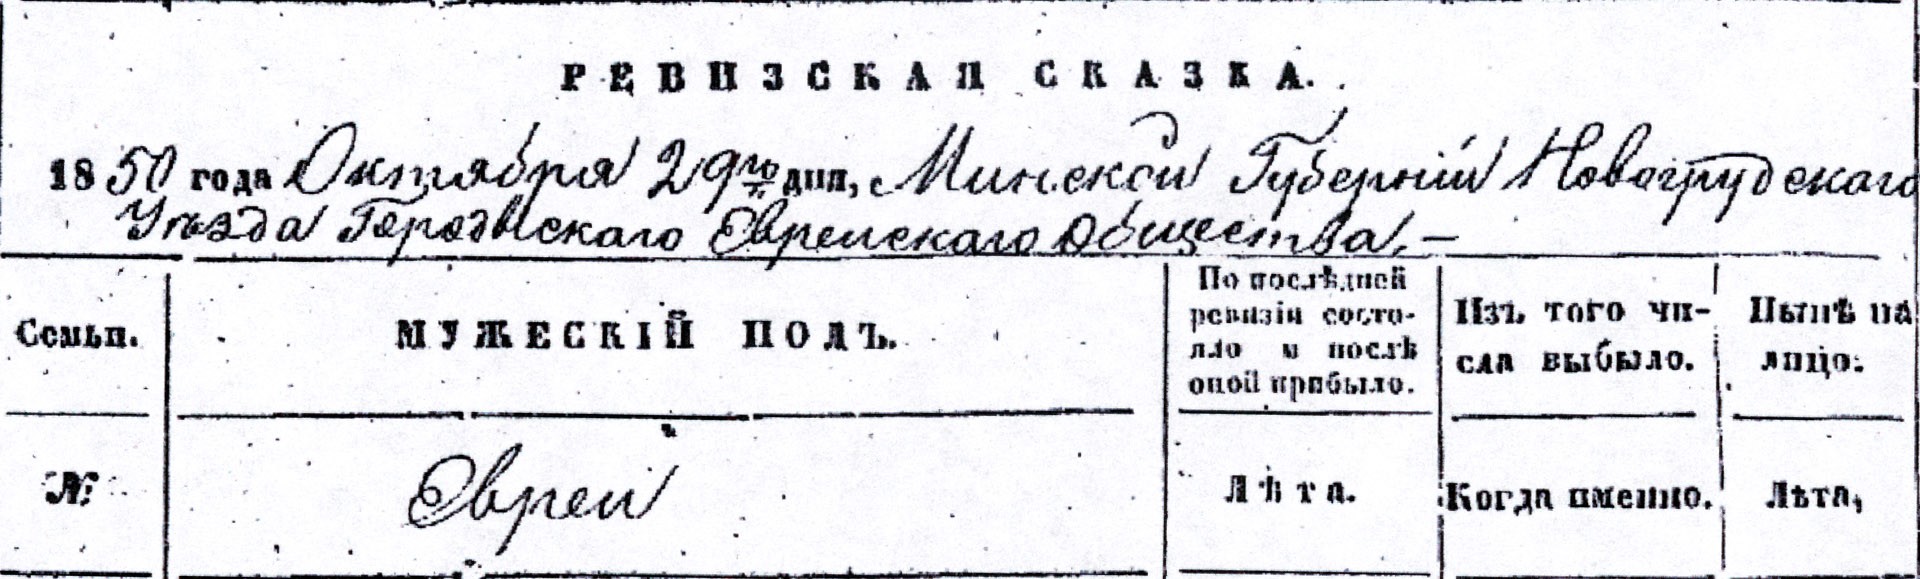 РЕВИЗСКАЯ СКАЗКА.
1850 года Октября 29го дня, Минской Губерніи Новогрудскаго
Уѣзда Городыскаго Еврейскаго Общества. –
Семьи.
МУЖЕСКІЙ ПОЛЪ.
По послѣдней
ревизіи состо-
яло и послѣ
оной прибыло.
Изъ того чи-
сла выбыло.
Нынѣ на
лицо.
№
Евреи
Лѣта.
Когда именно.
Лѣта,